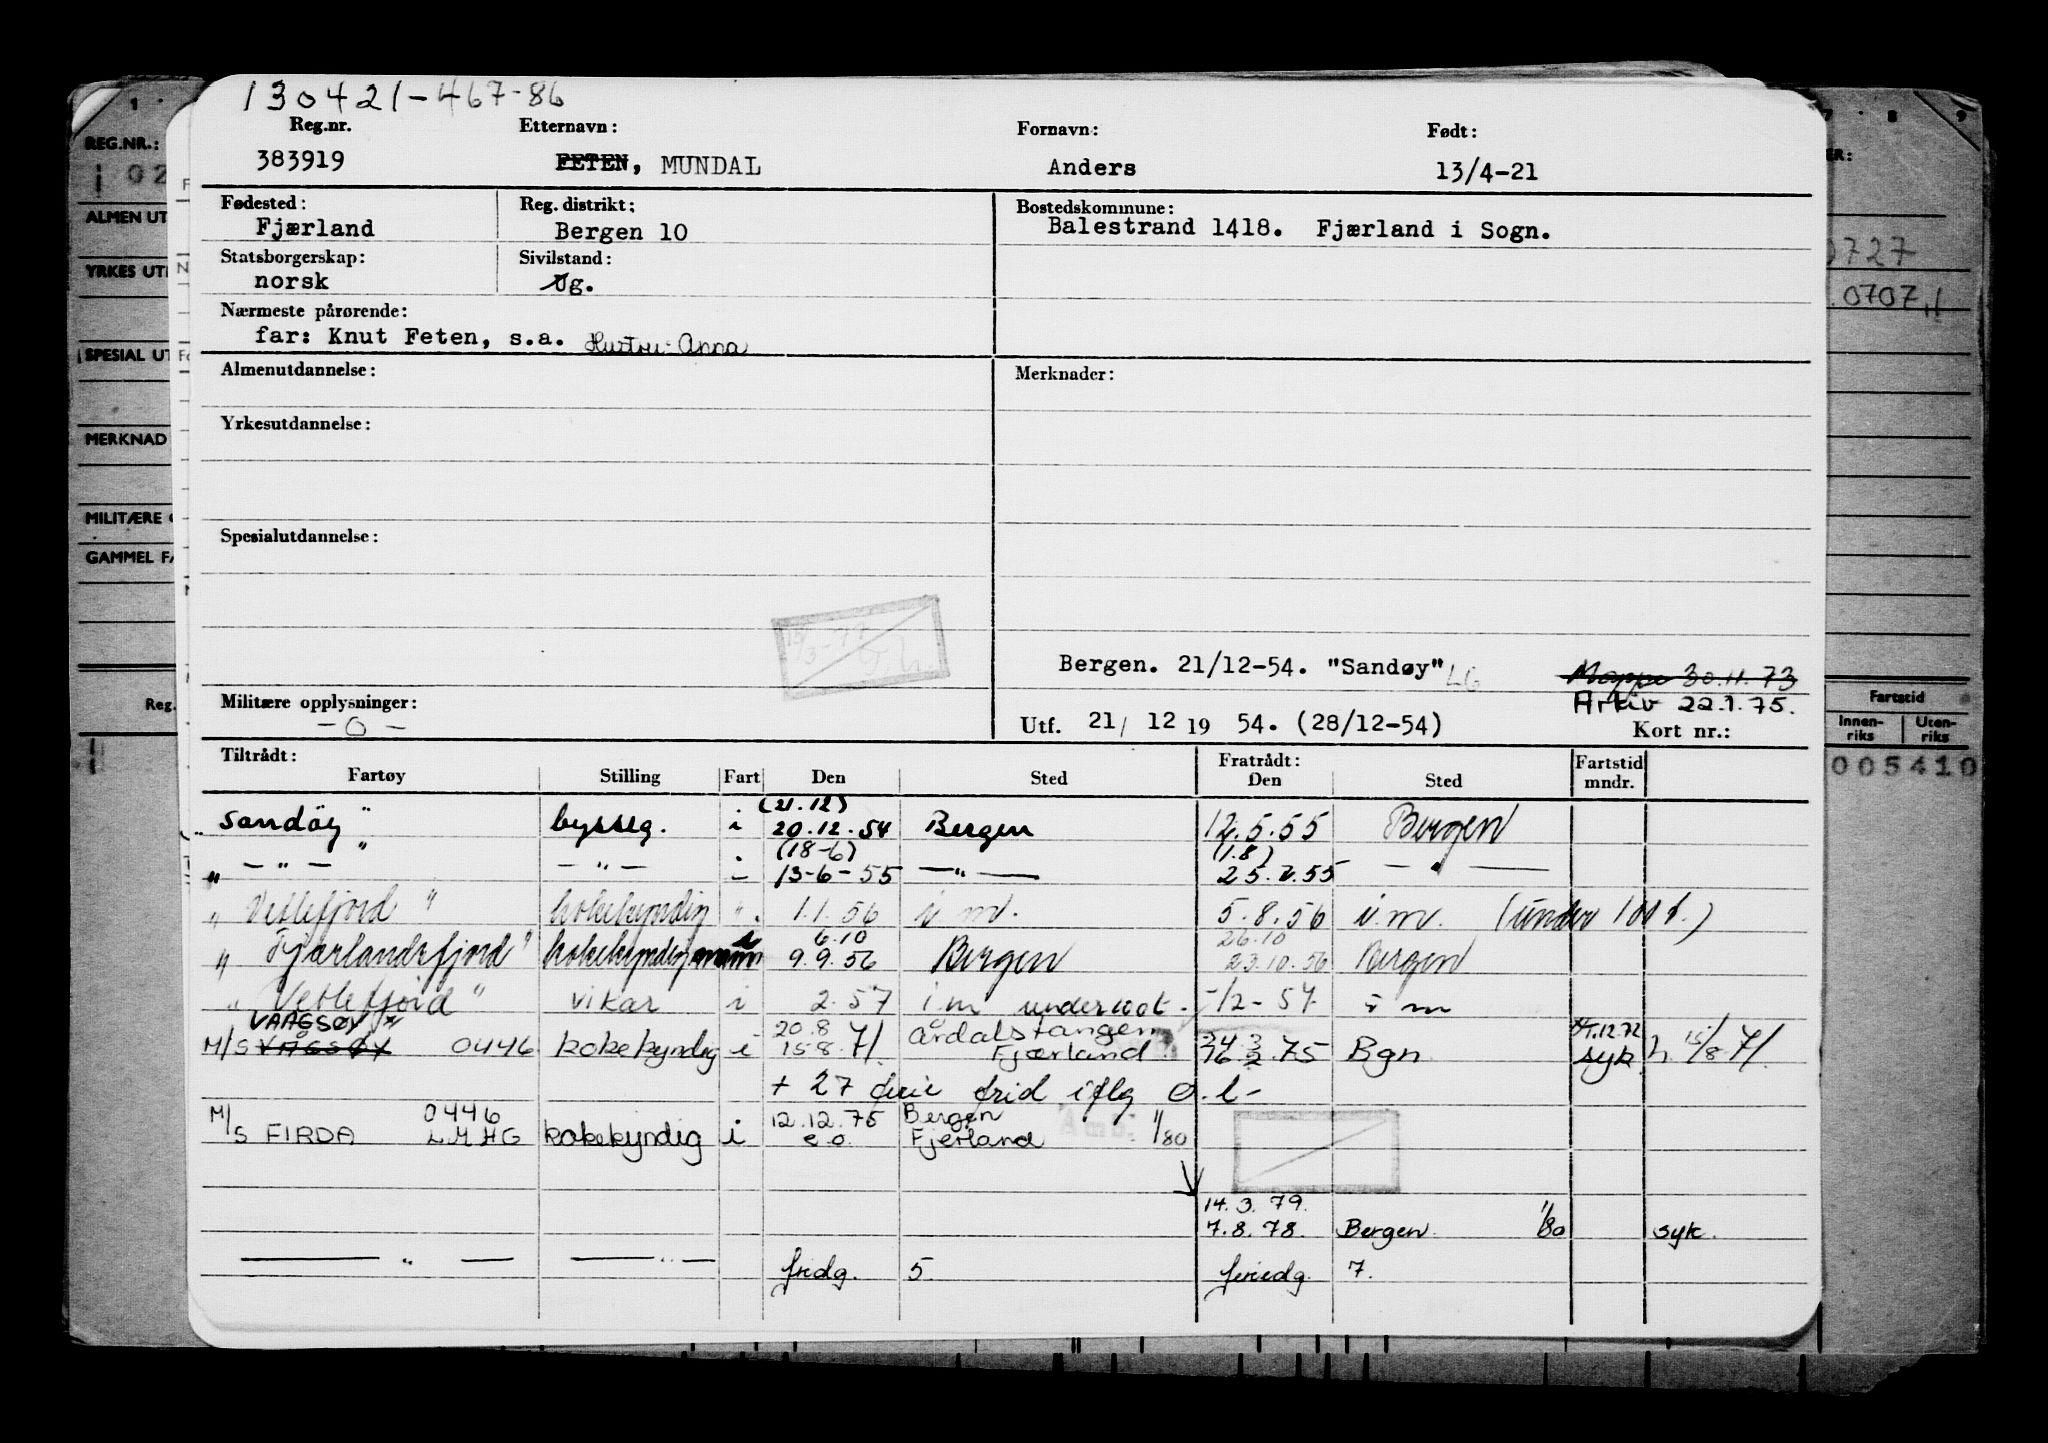 130421-467-86
Reg.nr. Etternavn: Fornavn: Født:
383919 FETEN, MUNDAL Anders 13/4-21
Fødested: Reg. distrikt: Bostedskommune:
Fjærland Bergen 10 Balestrand 1418. Fjærland i Sogn.
Statsborgerskap: Sivilstand:
norsk Ug.
Nærmeste pårørende:
far: Knut Feten, s.a. Hustru: Anna
Almenutdannelse: Merknader:
Yrkesutdannelse:
Spesialutdannelse:
Bergen. 21/12-54. "Sandøy" LG
Mappe 30.11.73
Militære opplysninger: Arkiv 22.1.75.
-0- Utf. 21/ 12 19 54. (28/12-54) Kort nr.:
Tiltrådt: Fratrådt: Fartstid
Fartøy Stilling Fart Den Sted Den Sted mndr.
(21.12)
"Sandöy" bysseg. i 20.12.54 Bergen 12.5.55 Bergen
(18-6) (1.8)
" — " — " — " — - 13-6-55 — " — 25.7.55 — " —
" Vetlefjord " kokekyndig " 1.1.56 i.m. 5.8.56 i.m. (under 100 t.)
6.10 26.10
" Fjærlandsfjord " kokekyndig i 9.9.56 Bergen 23.10.56 Bergen
" Vetlefjord " vikar i 2.57 i.m. under 100t. -/2-57 i m
VAAGSØY 20.8 Årdalstangen 24.3 1.12.72
M/S VÅGSØY 0446 kokekyndig i 15.8.71. Fjærland 16.2.75 Bgn syk h. 15/8 71.
+ 27 frid iflg
M/S 0446 12.12.75 Bergen
FIRDA LMHG kokekyndig i e.o. Fjerland 1/80
14.3.79.
7.8.78. Bergen 1/80 syk.
— " — — " — fridg. 5. feriedg. 7.
REG.NR.:
102
ALMEN UT
YRKES UT
SPESIAL UT
MERKNAD
MILITÆRE
GAMMEL FA
Reg.
0727
0707
Fartstid
Innen-riks Uten-riks
005410